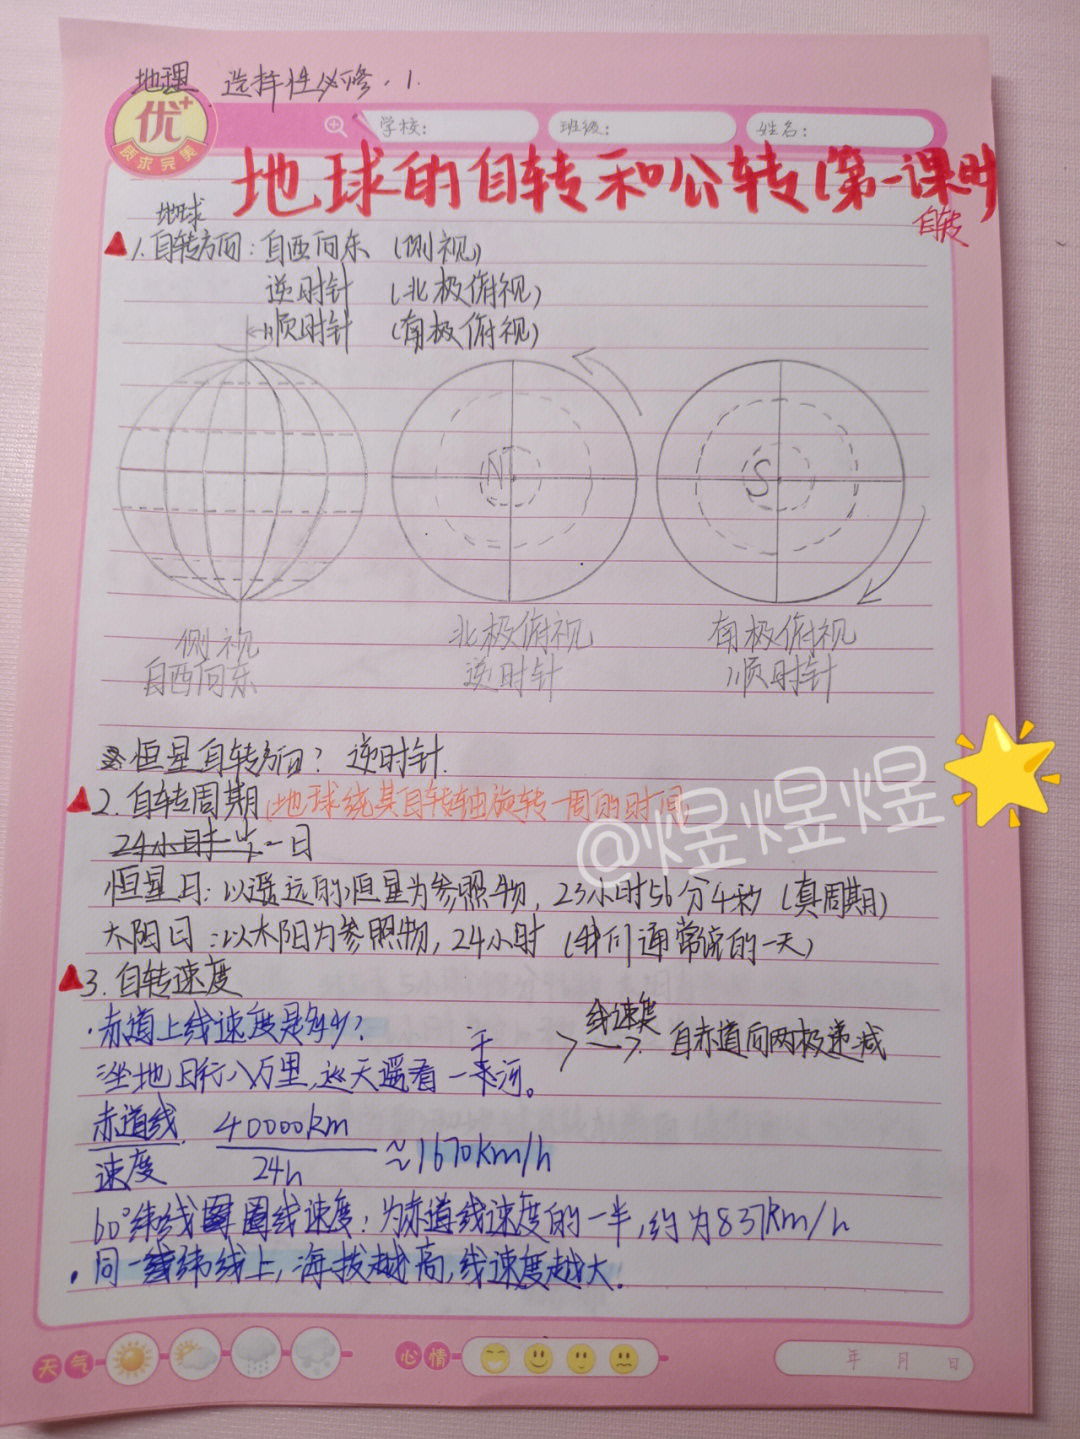 地理 选择性必修.1.
优+
质求完美
学校: 班级: 姓名:
地球的自转和公转(第一课时
自转
地球
1.自转方向:自西向东 (侧视)
逆时针 (北极俯视)
顺时针 (南极俯视)
N
S
侧视
自西向东
北极俯视
逆时针
南极俯视
顺时针
恒星自转方向?逆时针.
2.自转周期(地球绕其自转轴旋转一周的时间)
24小时 一日
恒星日:以遥远的恒星为参照物,23小时56分4秒(真周期)
太阳日:以太阳为参照物,24小时(我们通常说的一天)
3.自转速度
·赤道上线速度是多少?
坐地日行八万里,巡天遥看一千河。
线速度
自赤道向两极递减
赤道线速度 40000km/24h ≈1670km/h
60°纬线圈线速度:为赤道线速度的一半,约为837km/h
·同一纬线上,海拔越高,线速度越大.
@煜煜煜
天气 心情 年 月 日